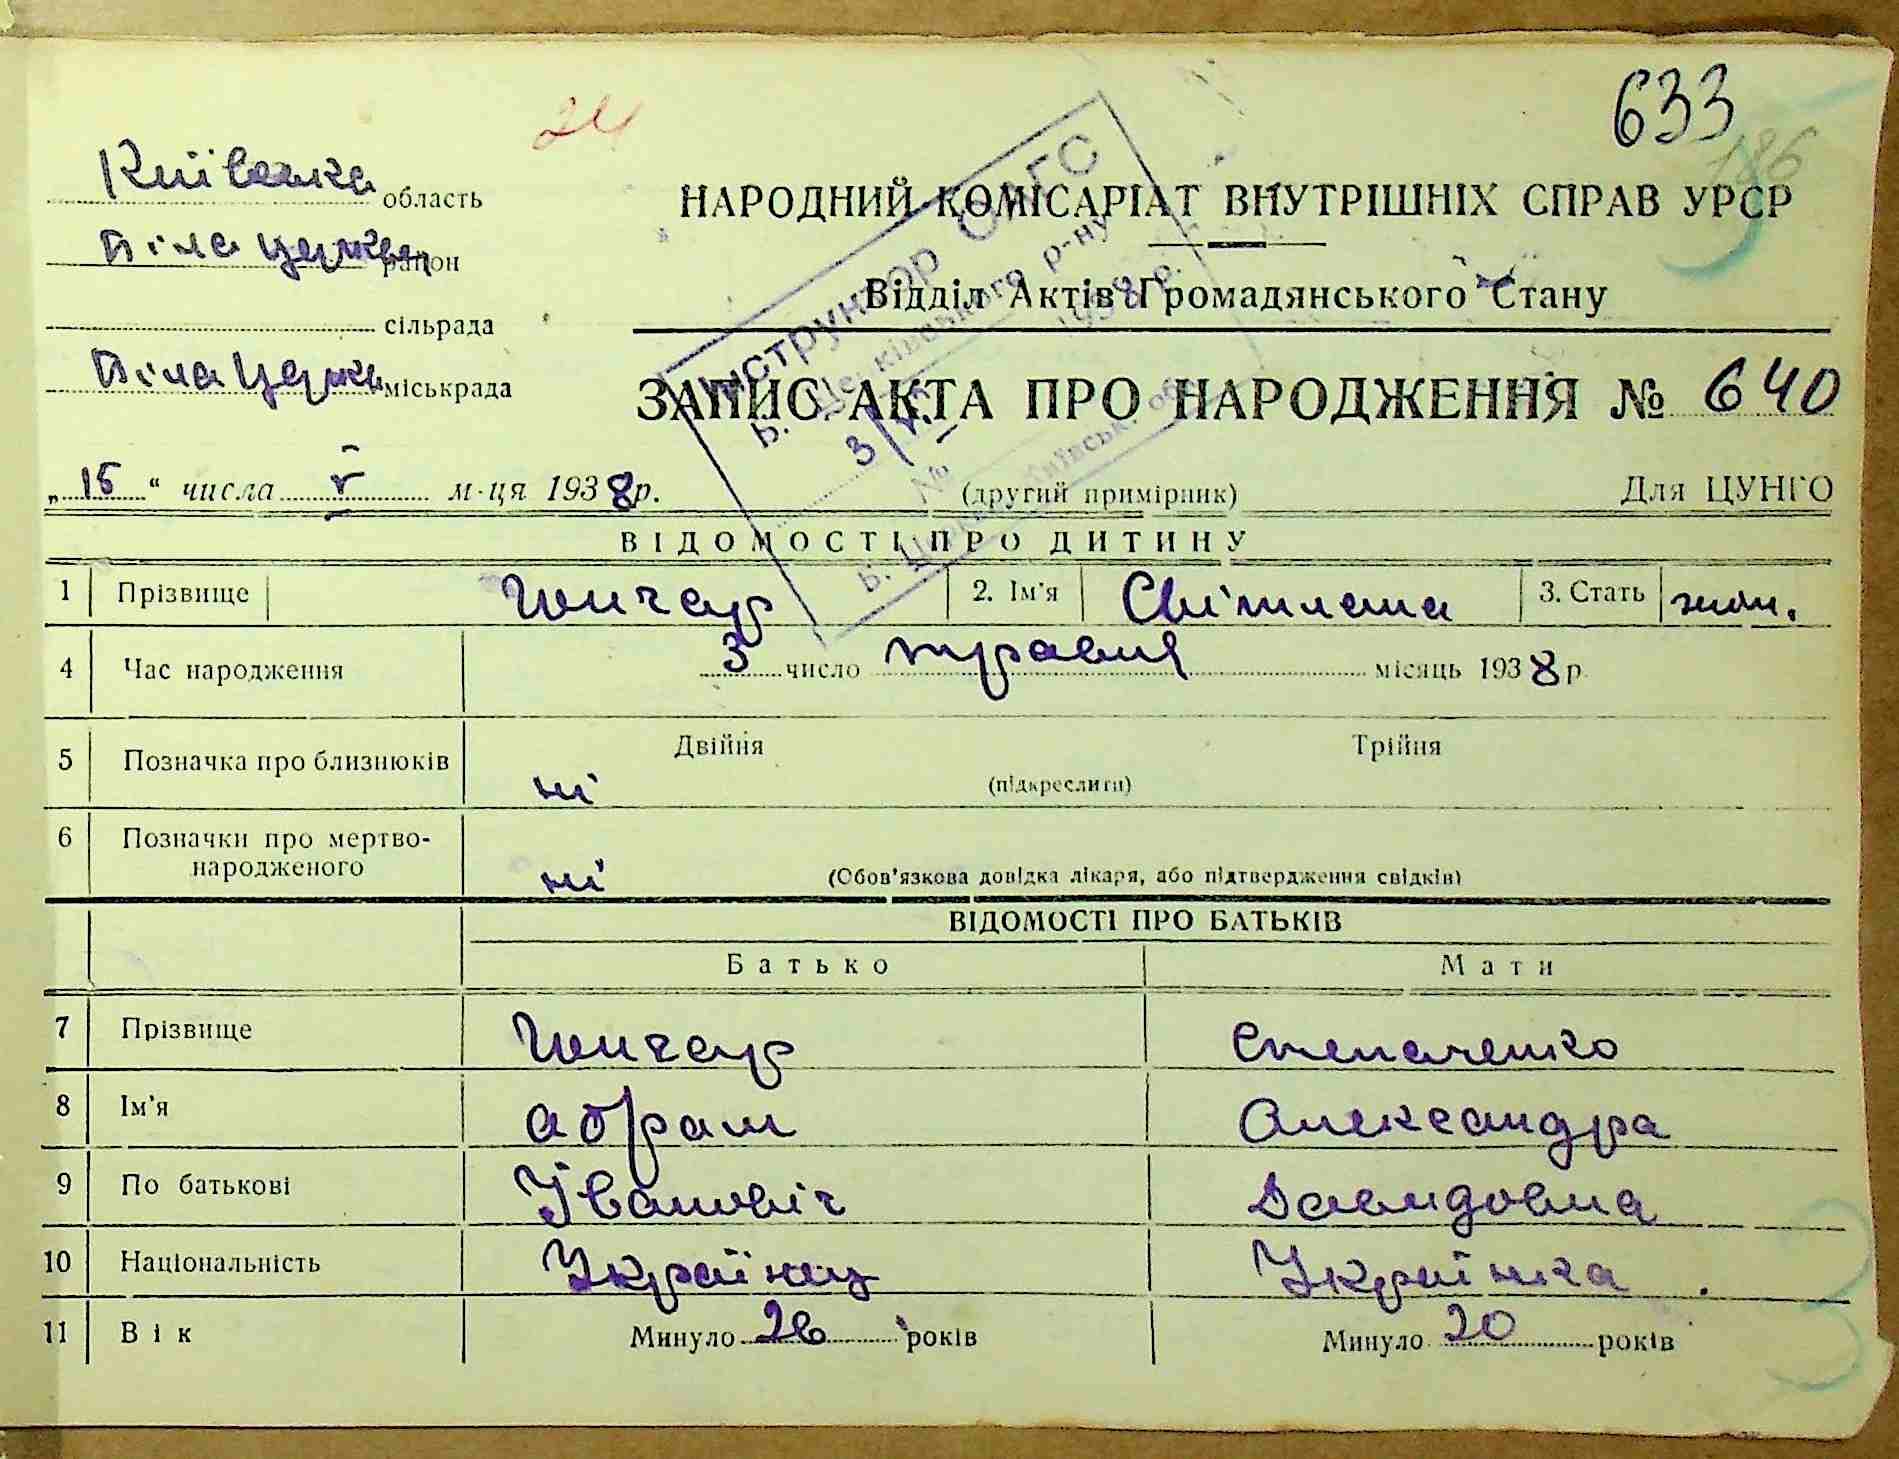 633
186
24
Київська область
НАРОДНИЙ КОМІСАРІАТ ВНУТРІШНІХ СПРАВ УРСР
Біла Церква район
Відділ Актів Громадянського Стану
сільрада
Біла Церква міськрада
ЗАПИС АКТА ПРО НАРОДЖЕННЯ № 640
Інструктор ОАГС
Б. Церківського р-ну
3/V 1938 р.
№
Б. Церква, Київськ. обл.
„15“ числа V м-ця 1938 р.
(другий примірник)
Для ЦУНГО
ВІДОМОСТІ ПРО ДИТИНУ
1 Прізвище Гончар 2. Ім'я Світлана 3. Стать жін.
4 Час народження 3 число травня місяць 1938 р.
5 Позначка про близнюків ні Двійня Трійня
(підкреслити)
6 Позначки про мертво-
народженого ні (Обов'язкова довідка лікаря, або підтвердження свідків)
ВІДОМОСТІ ПРО БАТЬКІВ
Батько Мати
7 Прізвище Гончар Степаненко
8 Ім'я Абрам Александра
9 По батькові Івановіч Давидовна
10 Національність Українец Українка
11 Вік Минуло 26 років Минуло 20 років